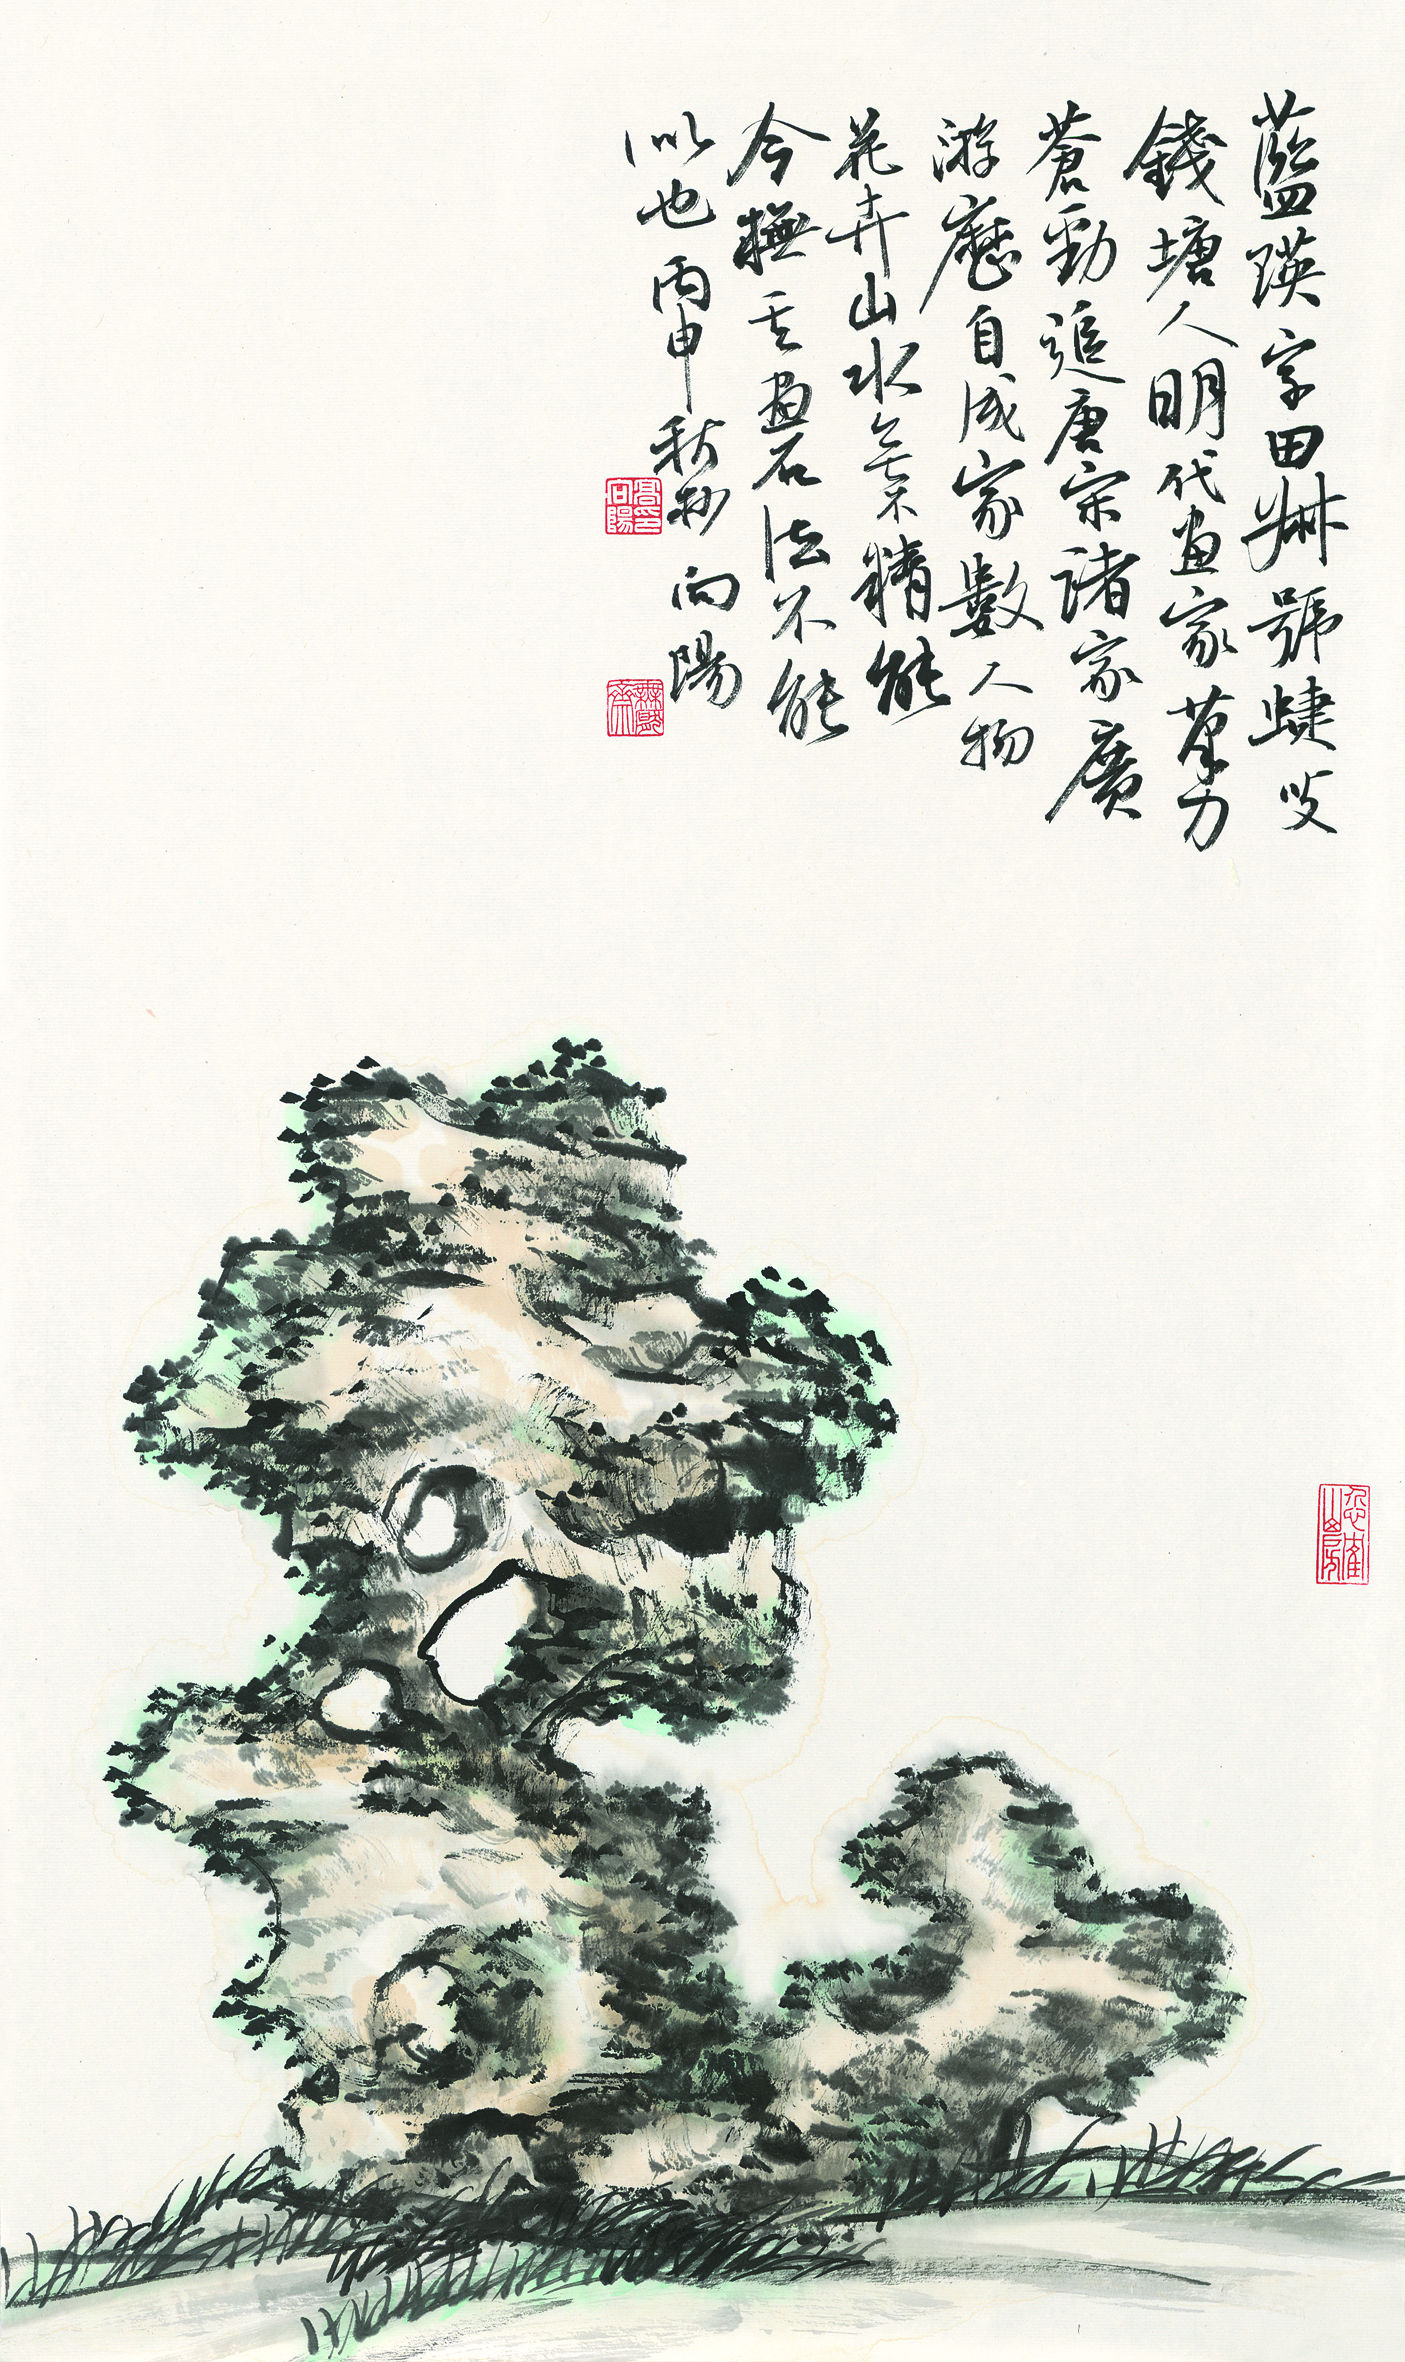 藍瑛字田叔號蜨叟
錢塘人明代畫家筆力
蒼勁追唐宋諸家廣
游歷自成家數人物
花卉山水無不精能
今橅其畫石法不能
似也丙申秋抄向陽
高向陽印
山房